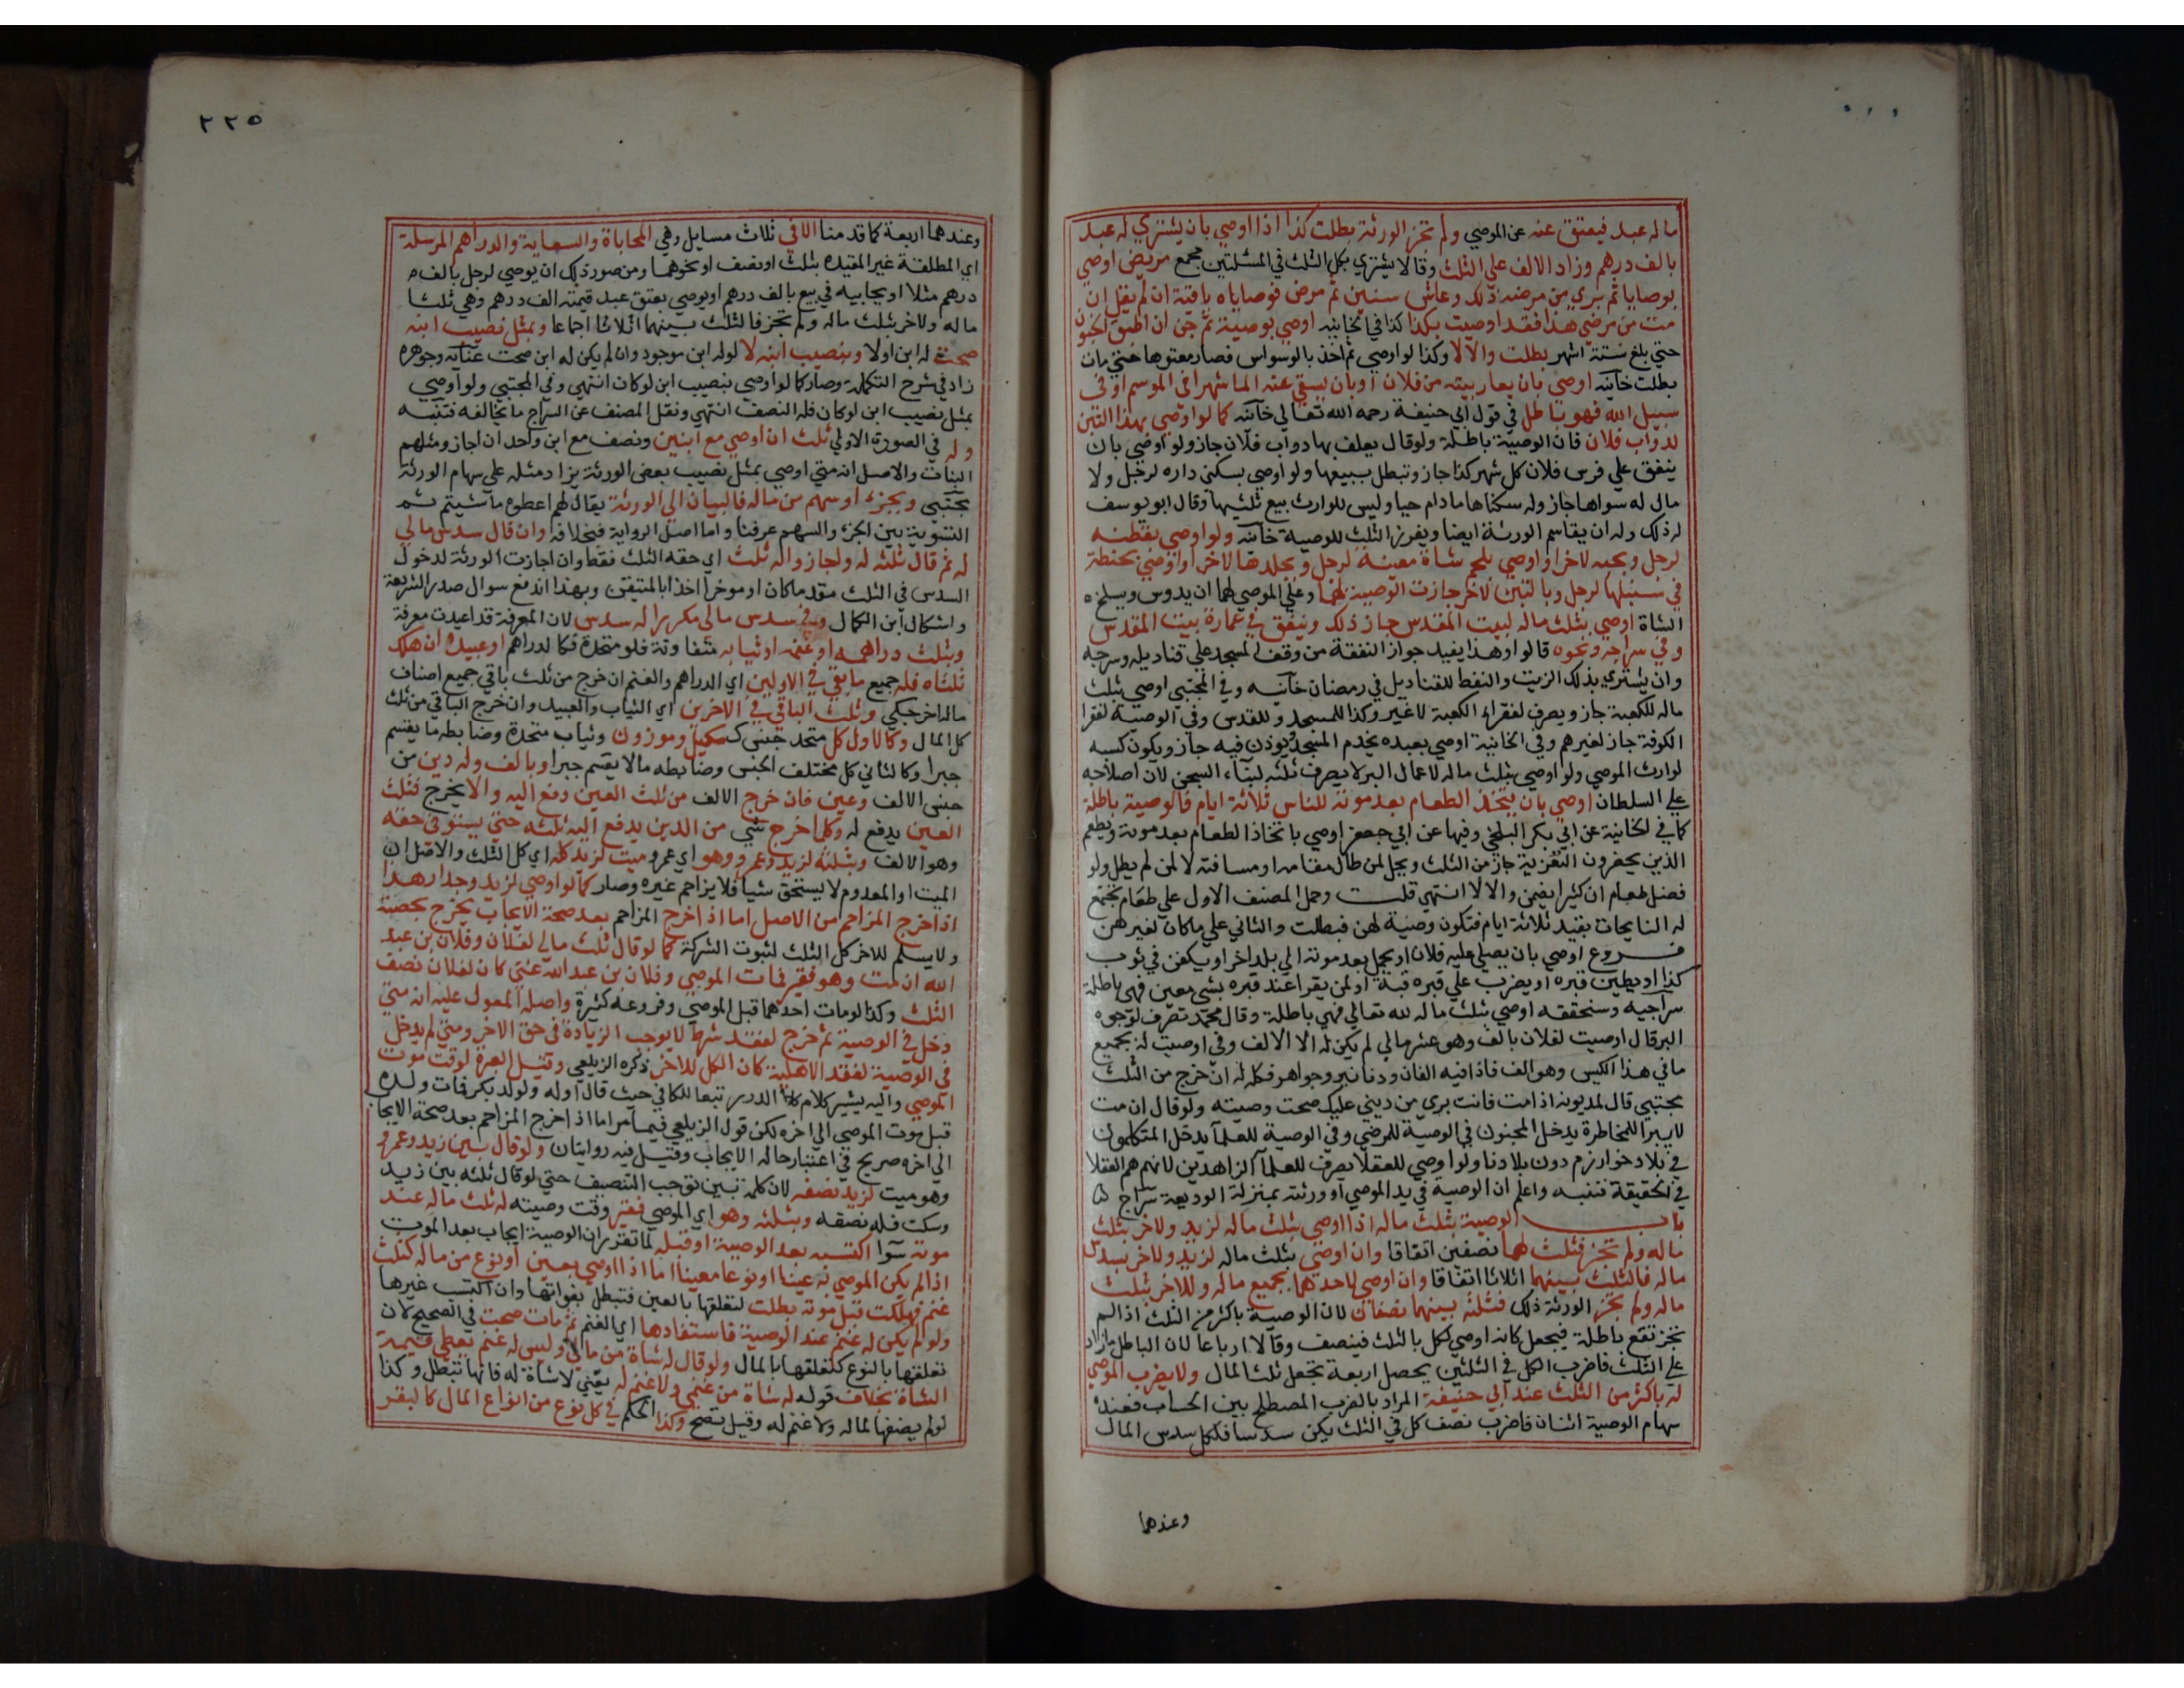 ماله عبد فيعتق عنه عن الموصي ولم تجز الورثة بطلت كذا اذا اوصي بان يشتري له عبد
بالف درهم وزاد الالف علي الثلث وقالا يشتري بكل الثلث في المسئلتين مجمع مريض اوصي
بوصايا ثم بري من مرضه ذلك وعاش سنين ثم مرض فوصاياه باقية ان لم يقل ان
مت من مرضي هذا فقد اوصيت بكذا كذا في الخانيه اوصي بوصية ثم جن ان اطبق الجنون
حتي بلغ ستة اشهر بطلت والالا وكذا لو اوصي ثم اخذ بالوسواس فصار معتوها حتي مات
بطلت خانيه اوصي بان يعار بيته من فلان او بان يسقي عنه الما شهرا في الموسم او في
سبيل الله فهو باطل في قول ابي حنيفة رحمه الله تعالي خانيه كما لو اوصي بهذا التبن
لدواب فلان فان الوصية باطلة ولو قال يعلف بها دواب فلان جاز ولو اوصي بان
ينفق علي فرس فلان كل شهر كذا جاز وتبطل ببيعها ولو اوصي بسكني داره لرجل ولا
مال له سواها جاز وله سكناها ما دام حيا وليس للوارث بيع ثلثيها وقال ابو يوسف
له ذلك وله ان يقاسم الورثة ايضا ويفرز الثلث للوصية خانيه ولو اوصي بقطنه
لرجل وبحبه لاخر او اوصي بلحم شاة معينة لرجل وبجلدها لاخر او اوصي بحنطة
في سنبلها لرجل وبالتبن لاخر جازت الوصية لهما وعلي الموصي لهما ان يدوس ويسلخ
الشاة اوصي بثلث ماله لبيت المقدس جاز ذلك وينفق في عمارة بيت المقدس
وفي سراجه ونحوه قالوا وهذا يفيد جواز النفقة من وقف المسجد علي قناديله وسرجه
وان يشتري بذلك الزيت والنفط للقناديل في رمضان خانيه وفي المجتبي اوصي بثلث
ماله للكعبة جاز ويصرف لفقراء الكعبة لا غير وكذا للمسجد وللقدس وفي الوصية لفقرا
الكوفة جاز لغيرهم وفي الخانية اوصي بعبده يخدم المسجد ويوذن فيه جاز ويكون كسبه
لوارث الموصي ولو اوصي بثلث ماله لاعمال البر لا يصرف ثلثه لبناء السجن لان اصلاحه
علي السلطان اوصي بان يتخذ الطعام بعد موته للناس ثلاثة ايام فالوصية باطلة
كما في الخانية عن ابي بكر البلخي وفيها عن ابي جعفر اوصي باتخاذ الطعام بعد موته ويطعم
الذين يحضرون التعزية جاز من الثلث ويحل لمن طال مقامه او مسافته لا لمن لم يطل ولو
فضل طعام ان كثيرا يضمن والا لا انتهي قلت وحمل المصنف الاول علي طعام يجتمع
له النايحات بقيد ثلاثة ايام فتكون وصية لهن فبطلت والثاني علي ما كان لغيرهن
فروع اوصي بان يصلي عليه فلان او يحمل بعد موته الي بلد اخر او يكفن في ثوب
كذا او يطين قبره او يضرب علي قبره قبة او لمن يقرا عند قبره بشي معين فهي باطلة
سراجيه وسنحققه اوصي بثلث ماله لله تعالي فهي باطلة وقال محمد تصرف لوجوه
البر قال اوصيت لفلان بالف وهو عشر مالي لم يكن له الا الالف وفي اوصيت له بجميع
ما في هذا الكيس وهو الف فاذا فيه الفان ودنانير وجواهر فكله له ان خرج من الثلث
مجتبي قال لمديونه اذا مت فانت بري من ديني عليك صحت وصيته ولو قال ان مت
لا يبرا للمخاطرة يدخل المجنون في الوصية للمرضي وفي الوصية للعلما يدخل المتكلمون
في بلاد خوارزم دون بلادنا ولو اوصي للعقلا يصرف للعلما الزاهدين لانهم هم العقلا
في الحقيقة فتنبه واعلم ان الوصية في يد الموصي او ورثته بمنزلة الوديعة سراج
باب الوصية بثلث ماله اذا اوصي بثلث ماله لزيد ولاخر بثلث
ماله ولم تجز فثلث لهما نصفين اتفاقا وان اوصي بثلث ماله لزيد ولاخر بسدس
ماله فالثلث بينهما اثلاثا اتفاقا وان اوصي لاحدهما بجميع ماله وللاخر بثلث
ماله ولم تجز الورثة ذلك فثلثه بينهما نصفان لان الوصية باكثر من الثلث اذا لم
تجز تقع باطلة فيجعل كانه اوصي لكل بالثلث فينصف وقالا ارباعا لان الباطل ما زاد
علي الثلث فاضرب الكل في الثلثين يحصل اربعة تجعل ثلث المال ولا يضرب الموصي
له باكثر من الثلث عند ابي حنيفة المراد بالضرب المصطلح بين الحساب فعنده
سهام الوصية اثنان فاضرب نصف كل في الثلث يكن سدسا فلكل سدس المال
وعندهما
٢٢٥
وعندهما اربعة كما قدمنا الا في ثلاث مسايل وهي المحاباة والسعاية والدراهم المرسلة
اي المطلقة غير المقيده بثلث او نصف او نحوهما ومن صور ذلك ان يوصي لرجل بالف
درهم مثلا او يحابيه في بيع بالف درهم او يوصي بعتق عبد قيمته الف درهم وهي ثلثا
ماله ولاخر بثلث ماله ولم تجز فالثلث بينهما اثلاثا اجماعا وبمثل نصيب ابنه
صحت له ابن اولا وبنصيب ابنه لا لو له ابن موجود وان لم يكن له ابن صحت عنايه وجوهره
زاد في شرح التكملة وصار كما لو اوصي بنصيب ابن لو كان انتهي وفي المجتبي ولو اوصي
بمثل نصيب ابن لو كان فله النصف انتهي ونقل المصنف عن السراج ما يخالفه فتنبه
وله في الصورة الاولي ثلث ان اوصي مع ابنين ونصف مع ابن واحد ان اجاز ومثلهم
البنات والاصل انه متي اوصي بمثل نصيب بعض الورثة يزاد مثله علي سهام الورثة
مجتبي وبجزء او سهم من ماله فالبيان الي الورثة يقال لهم اعطوه ما شيتم ثم
التسوية بين الجزء والسهم عرفنا واما اصل الرواية فبخلافه وان قال سدس مالي
له ثم قال ثلثه له واجازوا له ثلث اي حقه الثلث فقط وان اجازت الورثة لدخول
السدس في الثلث مقدما كان او موخرا اخذا بالمتيقن وبهذا اندفع سوال صدر الشريعة
واشكال ابن الكمال وفي سدس مالي مكررا له سدس لان المعرفة قد اعيدت معرفة
وبثلث دراهمه او غنمه او ثيابه متفاوتة فلو متحدة فكالدراهم او عبيده ان هلك
ثلثاه فله جميع ما بقي في الاولين اي الدراهم والغنم ان خرج من ثلث باقي جميع اصناف
ماله اخر جلبي وثلث الباقي في الاخرين اي الثياب والعبيد وان خرج الباقي من ثلث
كل المال وكالاول كل متحد جنس كمكيل وموزون وثياب متحدة وضابطه ما يقسم
جبرا وكالثاني كل مختلف الجنس وضابطه ما لا يقسم جبرا وبالف وله دين من
جنس الالف وعين فان خرج الالف من ثلث العين دفع اليه والا يخرج فثلث
العين يدفع له وكلما خرج شي من الدين يدفع اليه ثلثه حتي يستوفي حقه
وهو الالف وبثلثه لزيد وعمرو وهو اي عمرو ميت لزيد كله اي كل الثلث والاصل ان
الميت او المعدوم لا يستحق شيا فلا يزاحم غيره وصار كما لو اوصي لزيد وجدار هذا
اذا خرج المزاحم من الاصل اما اذا خرج المزاحم بعد صحة الايجاب يخرج بحصته
ولا يسلم للاخر كل الثلث لثبوت الشركة كما لو قال ثلث مالي لفلان وفلان بن عبد
الله ان مت وهو فقير فمات الموصي وفلان بن عبد الله غني كان لفلان نصف
الثلث وكذا لو مات احدهما قبل الموصي وفروعه كثيرة واصله المعول عليه انه متي
دخل في الوصية ثم خرج لفقد شرط لا يوجب الزيادة في حق الاخر ومتي لم يدخل
في الوصية لفقد الاهلية كان الكل للاخر ذكره الزيلعي وقيل العبرة لوقت موت
الموصي واليه يشير كلام الدرر تبعا للكافي حيث قال او له ولولد بكر فمات ولده
قبل موت الموصي الي اخره لكن قول الزيلعي فيما مر اما اذا خرج المزاحم بعد صحة الايجاب
الي اخره صريح في اعتبار حالة الايجاب وقيل فيه روايتان ولو قال بين زيد وعمرو
وهو ميت لزيد نصفه لان كلمة بين توجب التنصيف حتي لو قال ثلثه بين زيد
وسكت فله نصفه وبثلثه وهو اي الموصي فقير وقت وصيته له ثلث ماله عند
موته سوا اكتسبه بعد الوصية او قبله لما تقرر ان الوصية ايجاب بعد الموت
اذا لم يكن الموصي به عينا او نوعا معينا اما اذا اوصي بعين او نوع من ماله كثلث
غنم فهلكت قبل موته بطلت لتعلقها بالعين فتبطل بفواتها وان اكتسب غيرها
ولو لم يكن له غنم عند الوصية فاستفادها اي الغنم ثم مات صحت في الصحيح لان
تعلقها بالنوع كتعلقها بالمال ولو قال له شاة من مالي وليس له غنم يعطي قيمة
الشاة بخلاف قوله له شاة من غنمي ولا غنم له يعني لا شاة له فانها تبطل وكذا
لو لم يضفها لماله ولا غنم له وقيل تصح وكذا الحكم في كل نوع من انواع المال كالبقر